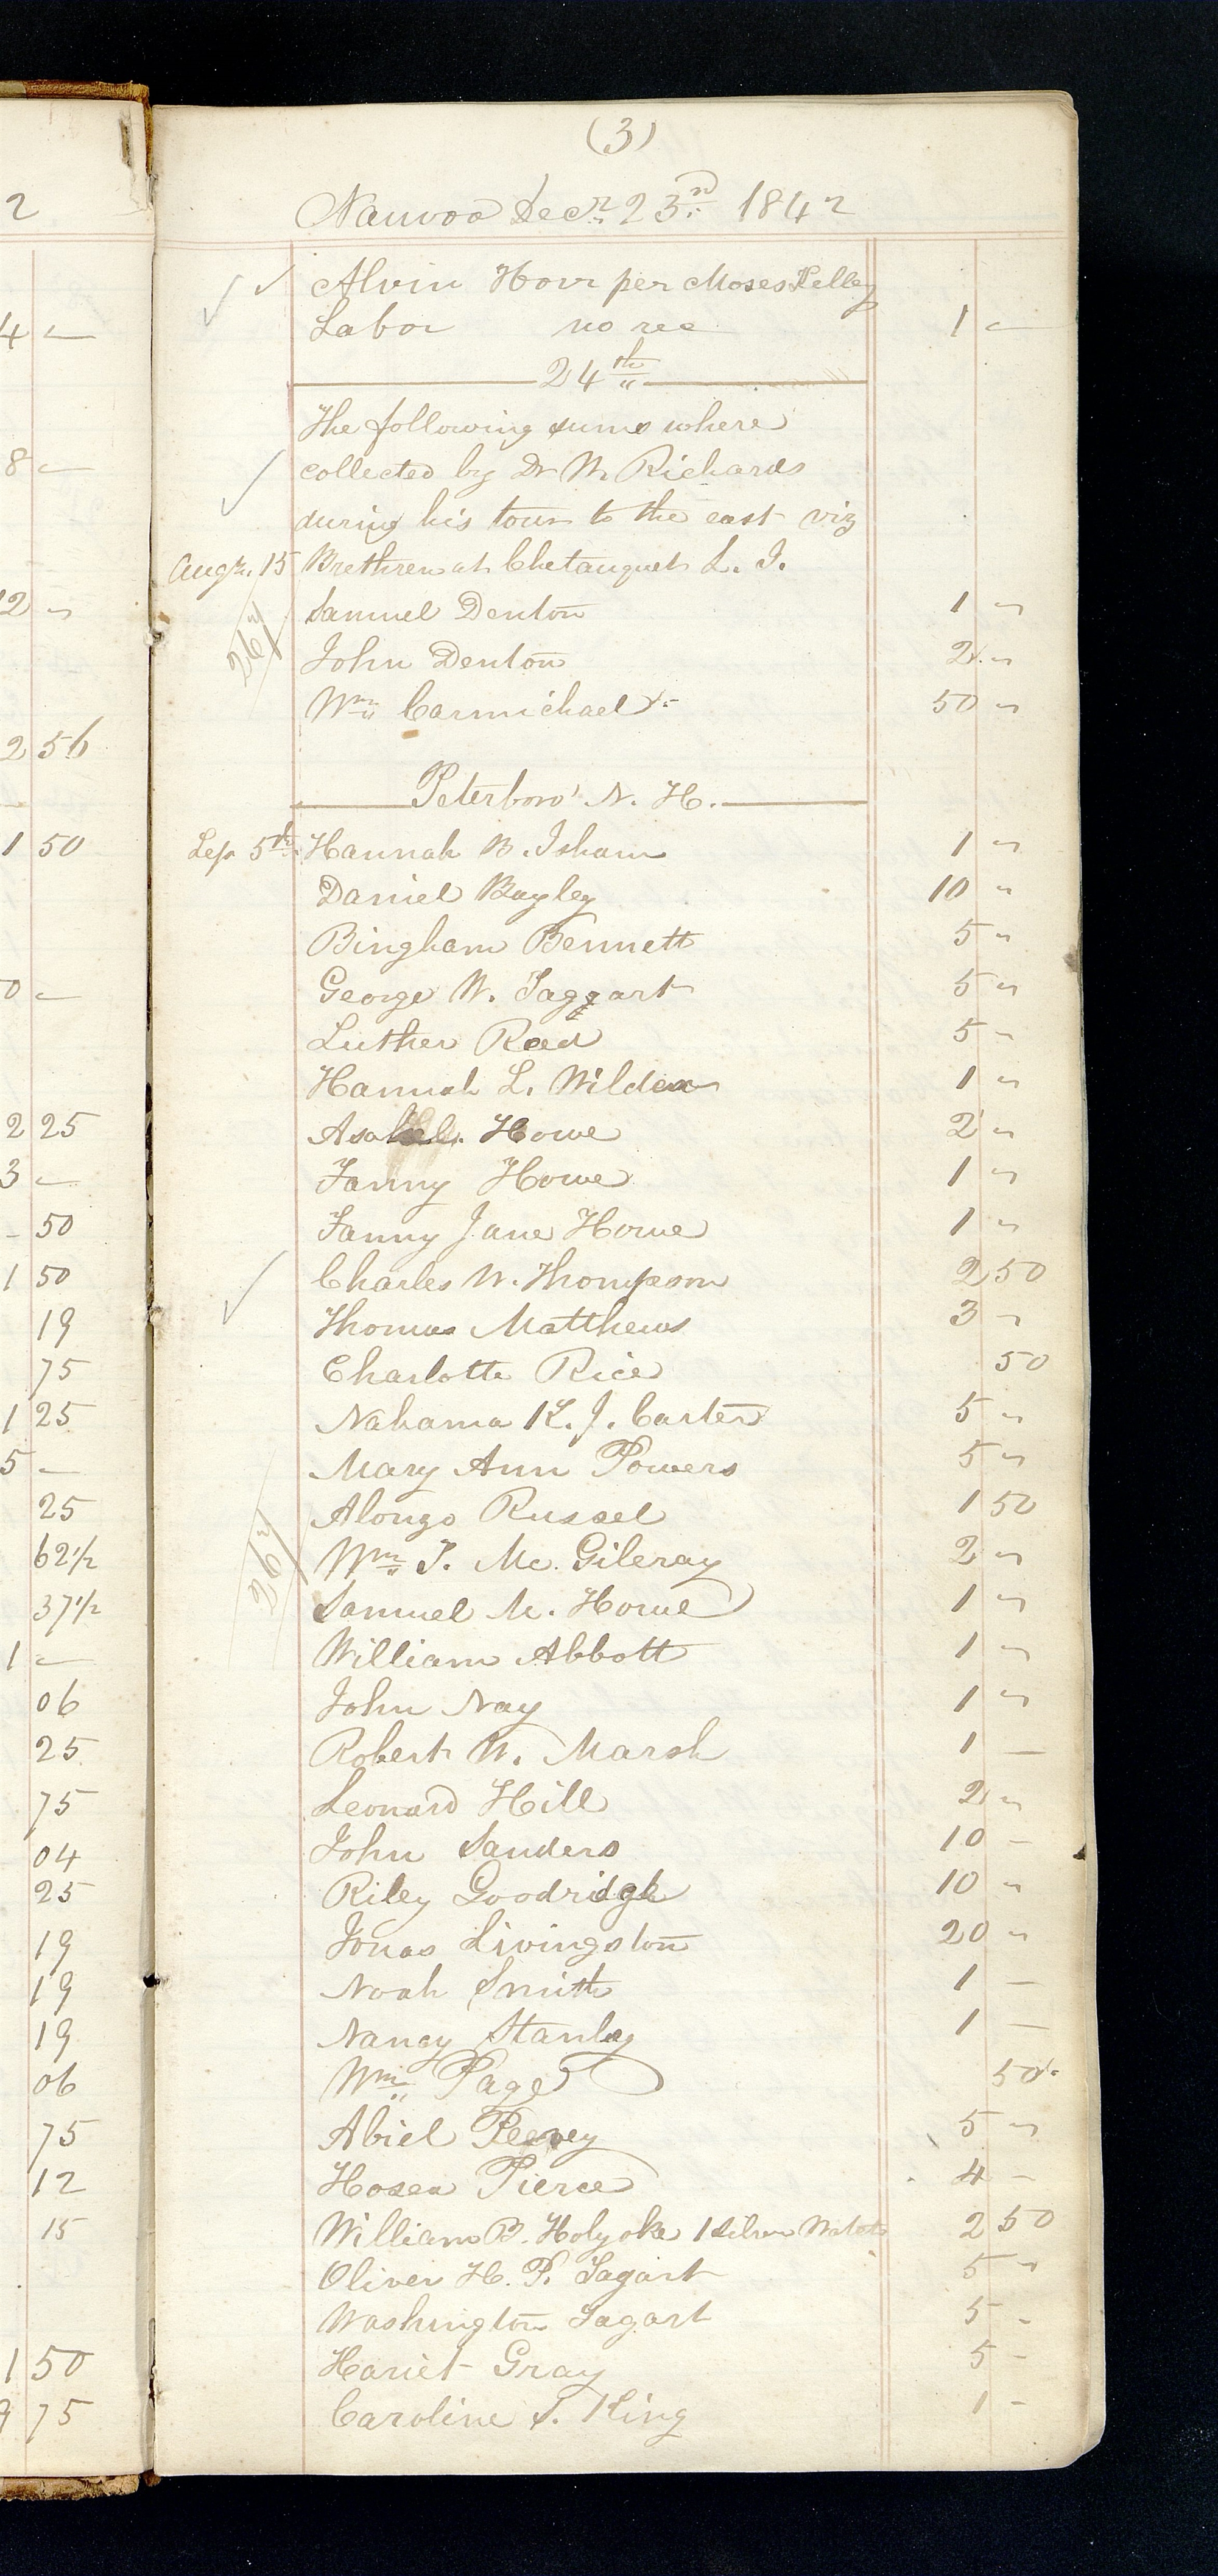 (3)
Nauvoo Decr. 23rd 1842
Alvin Horr per Moses Kelley
Labor no rec 1 "
24th
The following sums where
collected by Dr W. Richards
during his tour to the east viz
Augt. 15 Brethren at Chetauquet L. I.
Samuel Denton 1 "
John Denton 2 "
Wm Carmichael 50 "
Peterboro' N. H.
Sep 5th Hannah B. Isham 1 "
Daniel Bayley 10 "
Bingham Bennett 5 "
George W. Taggart 5 "
Luther Reed 5 -
Hannah L. Wilder 1 "
Asahel Howe 2 "
Fanny Howe 1 "
Fanny Jane Howe 1 "
Charles W. Thompson 2 50
Thomas Matthews 3 "
Charlotte Rice 50
Nahama K. J. Carter 5 "
Mary Ann Powers 5 "
Alonzo Russel 1 50
Wm T. Mc. Gileray 2 "
Samuel M. Howe 1 "
William Abbott 1 "
John Nay 1 "
Robert W. Marsh 1 —
Leonard Hill 2 "
John Sanders 10 -
Riley Goodridge 10 "
Jonas Livingston 20 "
Noah Smith 1 —
Nancy Stanley 1 —
Wm Page 50
Abiel Peavey 5 "
Hosea Pierce 4 -
William B. Holyoke 1 Silver Watch 2 50
Oliver H. P. Tagart 5 "
Washington Tagart 5 -
Hariet Gray 5 -
Caroline S. King 1 -
2
4 —
8 —
12 "
2 56
1 50
0 —
2 25
3 —
- 50
1 50
19
75
1 25
5 —
25
62 1/2
37 1/2
1 —
06
25
75
04
25
19
19
19
06
75
12
15
1 50
75